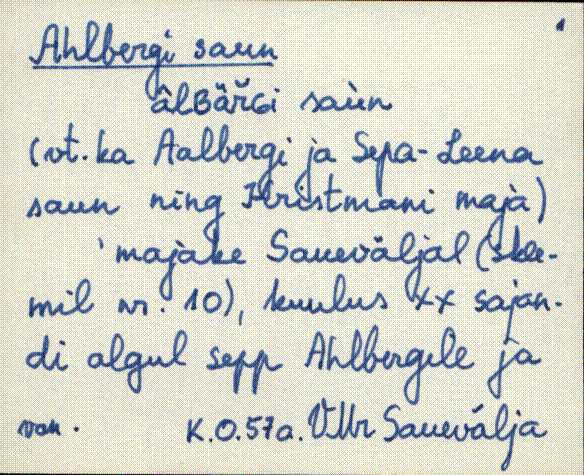 Ahlbergi saun
âlʙäřɢi saùn
(vt. ka Aalbergi ja Sepa-Leena
saun ning Kristmani maja)
'majake Saueväljal (skee-
mil nr. 10), kuulus XX sajan-
di algul sepp Ahlbergile ja
K.O. 57a. VMr Sauevälja